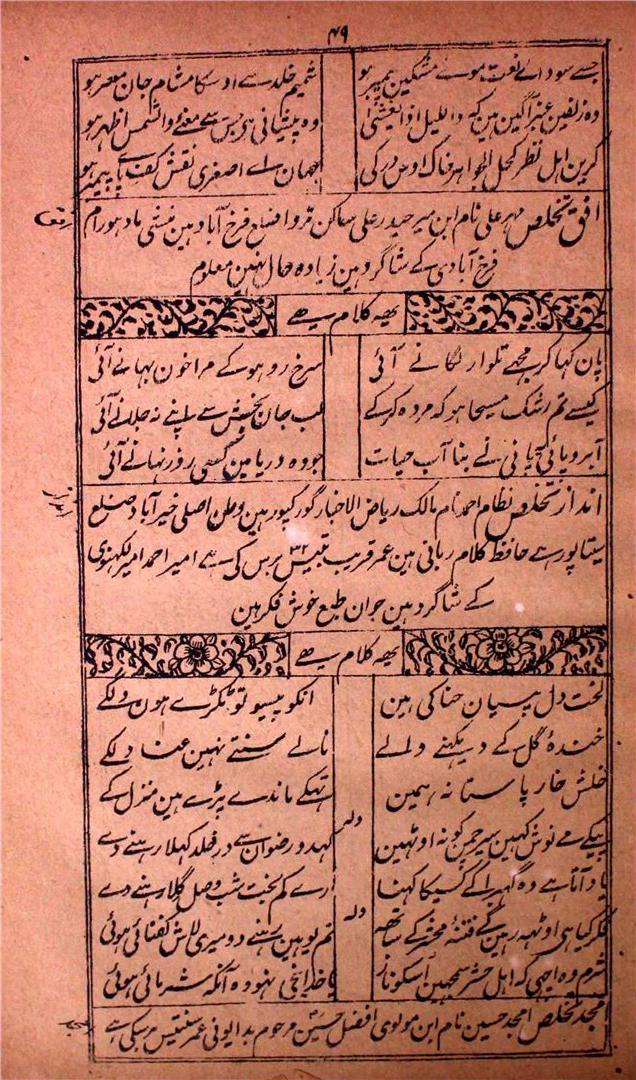 ۴۹
جسے سوداے نعت موے مشکین پیمبر ہو شمیم خلد سے اوسکا مشام جان معطر ہو
وہ زلفین عنبر آگین ہین کہ واللیل اذا یغشیٰ وہ پیشانی ہی جس سے معنئے والشمس اظہر ہو
کرین اہل نظر کحل الجواہر خاک اوس در کی جہان اے اصغری نقش کف پاے پیمبر ہو
افق تخلص مہر علی نام ابن میر حیدر علی ساکن ضلع فرخ آباد ہین منشی مادہو رام
افق
فرخ آبادی کے شاگرد ہین زیادہ حال نہین معلوم
یہہ کلام ہے
پان کہا کر مجھے تلوار لگانے آئی سرخ رو ہو کے مرا خون بہانے آئی
کیسے تم رشک مسیحا ہو کہ مردہ کر کے لب جان بخش سے اپنے نہ جلانے آئی
آبرو پائی یہ پانی نے بنا آب حیات جو وہ دریا مین کسی روز نہانے آئی
انداز تخلص نظام احمد نام مالک ریاض الاخبار گورکپور ہین وطن اصلی خیرآباد ضلع
انداز
سیتاپور ہے حافظ کلام ربانی ہین عمر قریب ۳۲ بتیس برس کی ہے امیر احمد امیر لکہنوی
کے شاگرد ہین جوان طبع خوش فکر ہین
یہہ کلام ہے
لخت دل پسیان حنا کی ہین انکو پیسو تو ٹکڑے ہون دلکے
خندۂ گل کے دیکہنے والے نالے سنتے نہین عنادلکے
خلش خار پا ستا نہ ہمین تہکے ماندے پڑے ہین منزل کے
ولہ
پیکے مے نوش کہین سیر چمن کو نہ اوٹہین کہدو رضوان سے در خلد کہلا رہنے دے
یاد آتا ہے وہ گہبرا کے کسیکا کہنا ارے کم بخت شب وصل گلا رہنے دے
ولہ
فکر کیا ہی اوٹہہ رہین گے فتنۂ محشر کے ساتہہ تم یوہین رہنے دو میری لاش کفنائی ہوئی
شرم وہ اچہی کہ اہل حشر سمجہین اسکو ناز یا خدا نیچی نہو وہ آنکہ شرمائی ہوئی
امجد تخلص امجد حسین نام ابن مولوی افضل حسین مرحوم بدایونی عمر سینتیس برسکی ہے
امجد